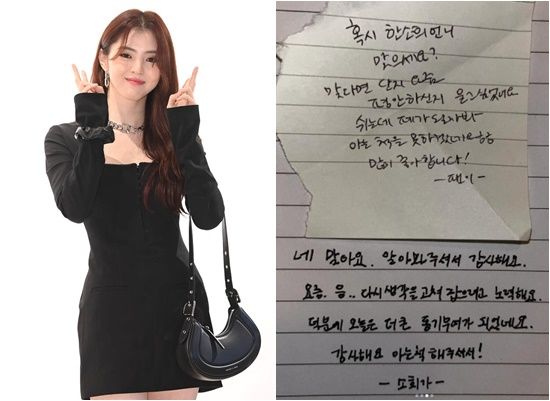 혹시 한소희 언니
맞으세요?
맞다면 단지 요즘
평안하신지 묻고싶었네요
쉬는데 제가 될까봐
아는 척은 못하겠네요
많이 좋아합니다!
- 팬이 -
네 맞아요. 알아봐주셔서 감사해요.
요즘. 음.. 다시 생각을 고쳐 잡으려고 노력해요.
덕분에 오늘은 더 큰 동기부여가 되었네요.
감사해요 아는척 해주셔서!
- 소희가 -